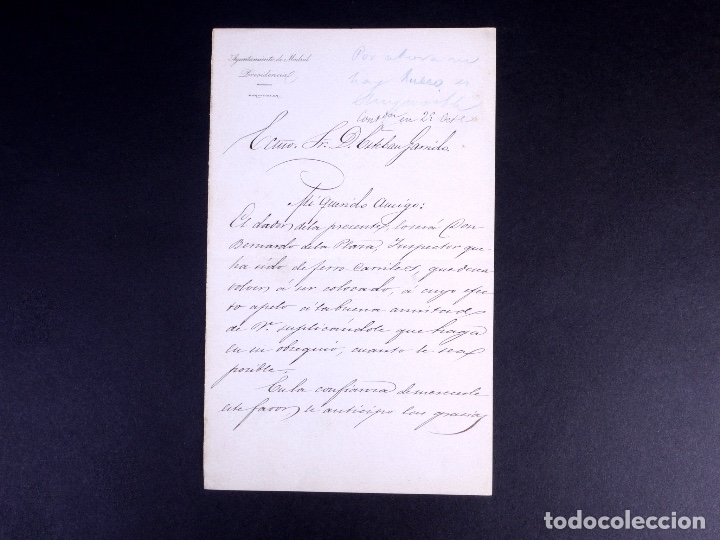 Ayuntamiento de Madrid
Presidencia
Por ahora no
hay nuevo es
Contdo en 29 Oct
Excmo. Sr. D. Esteban Garrido
Mi Querido Amigo:
El dador de la presente, lo será Don
Bernardo de la Plaza, Inspector que
ha sido de ferro carriles, que desea
volver á ser colocado, á cuyo efec
to apelo á la buena amistad
de V. suplicándole que haga
en su obsequio, cuanto le sea
posible.
En la confianza de merecerle
este favor le anticipo las gracias
todocoleccion
todocoleccion.net